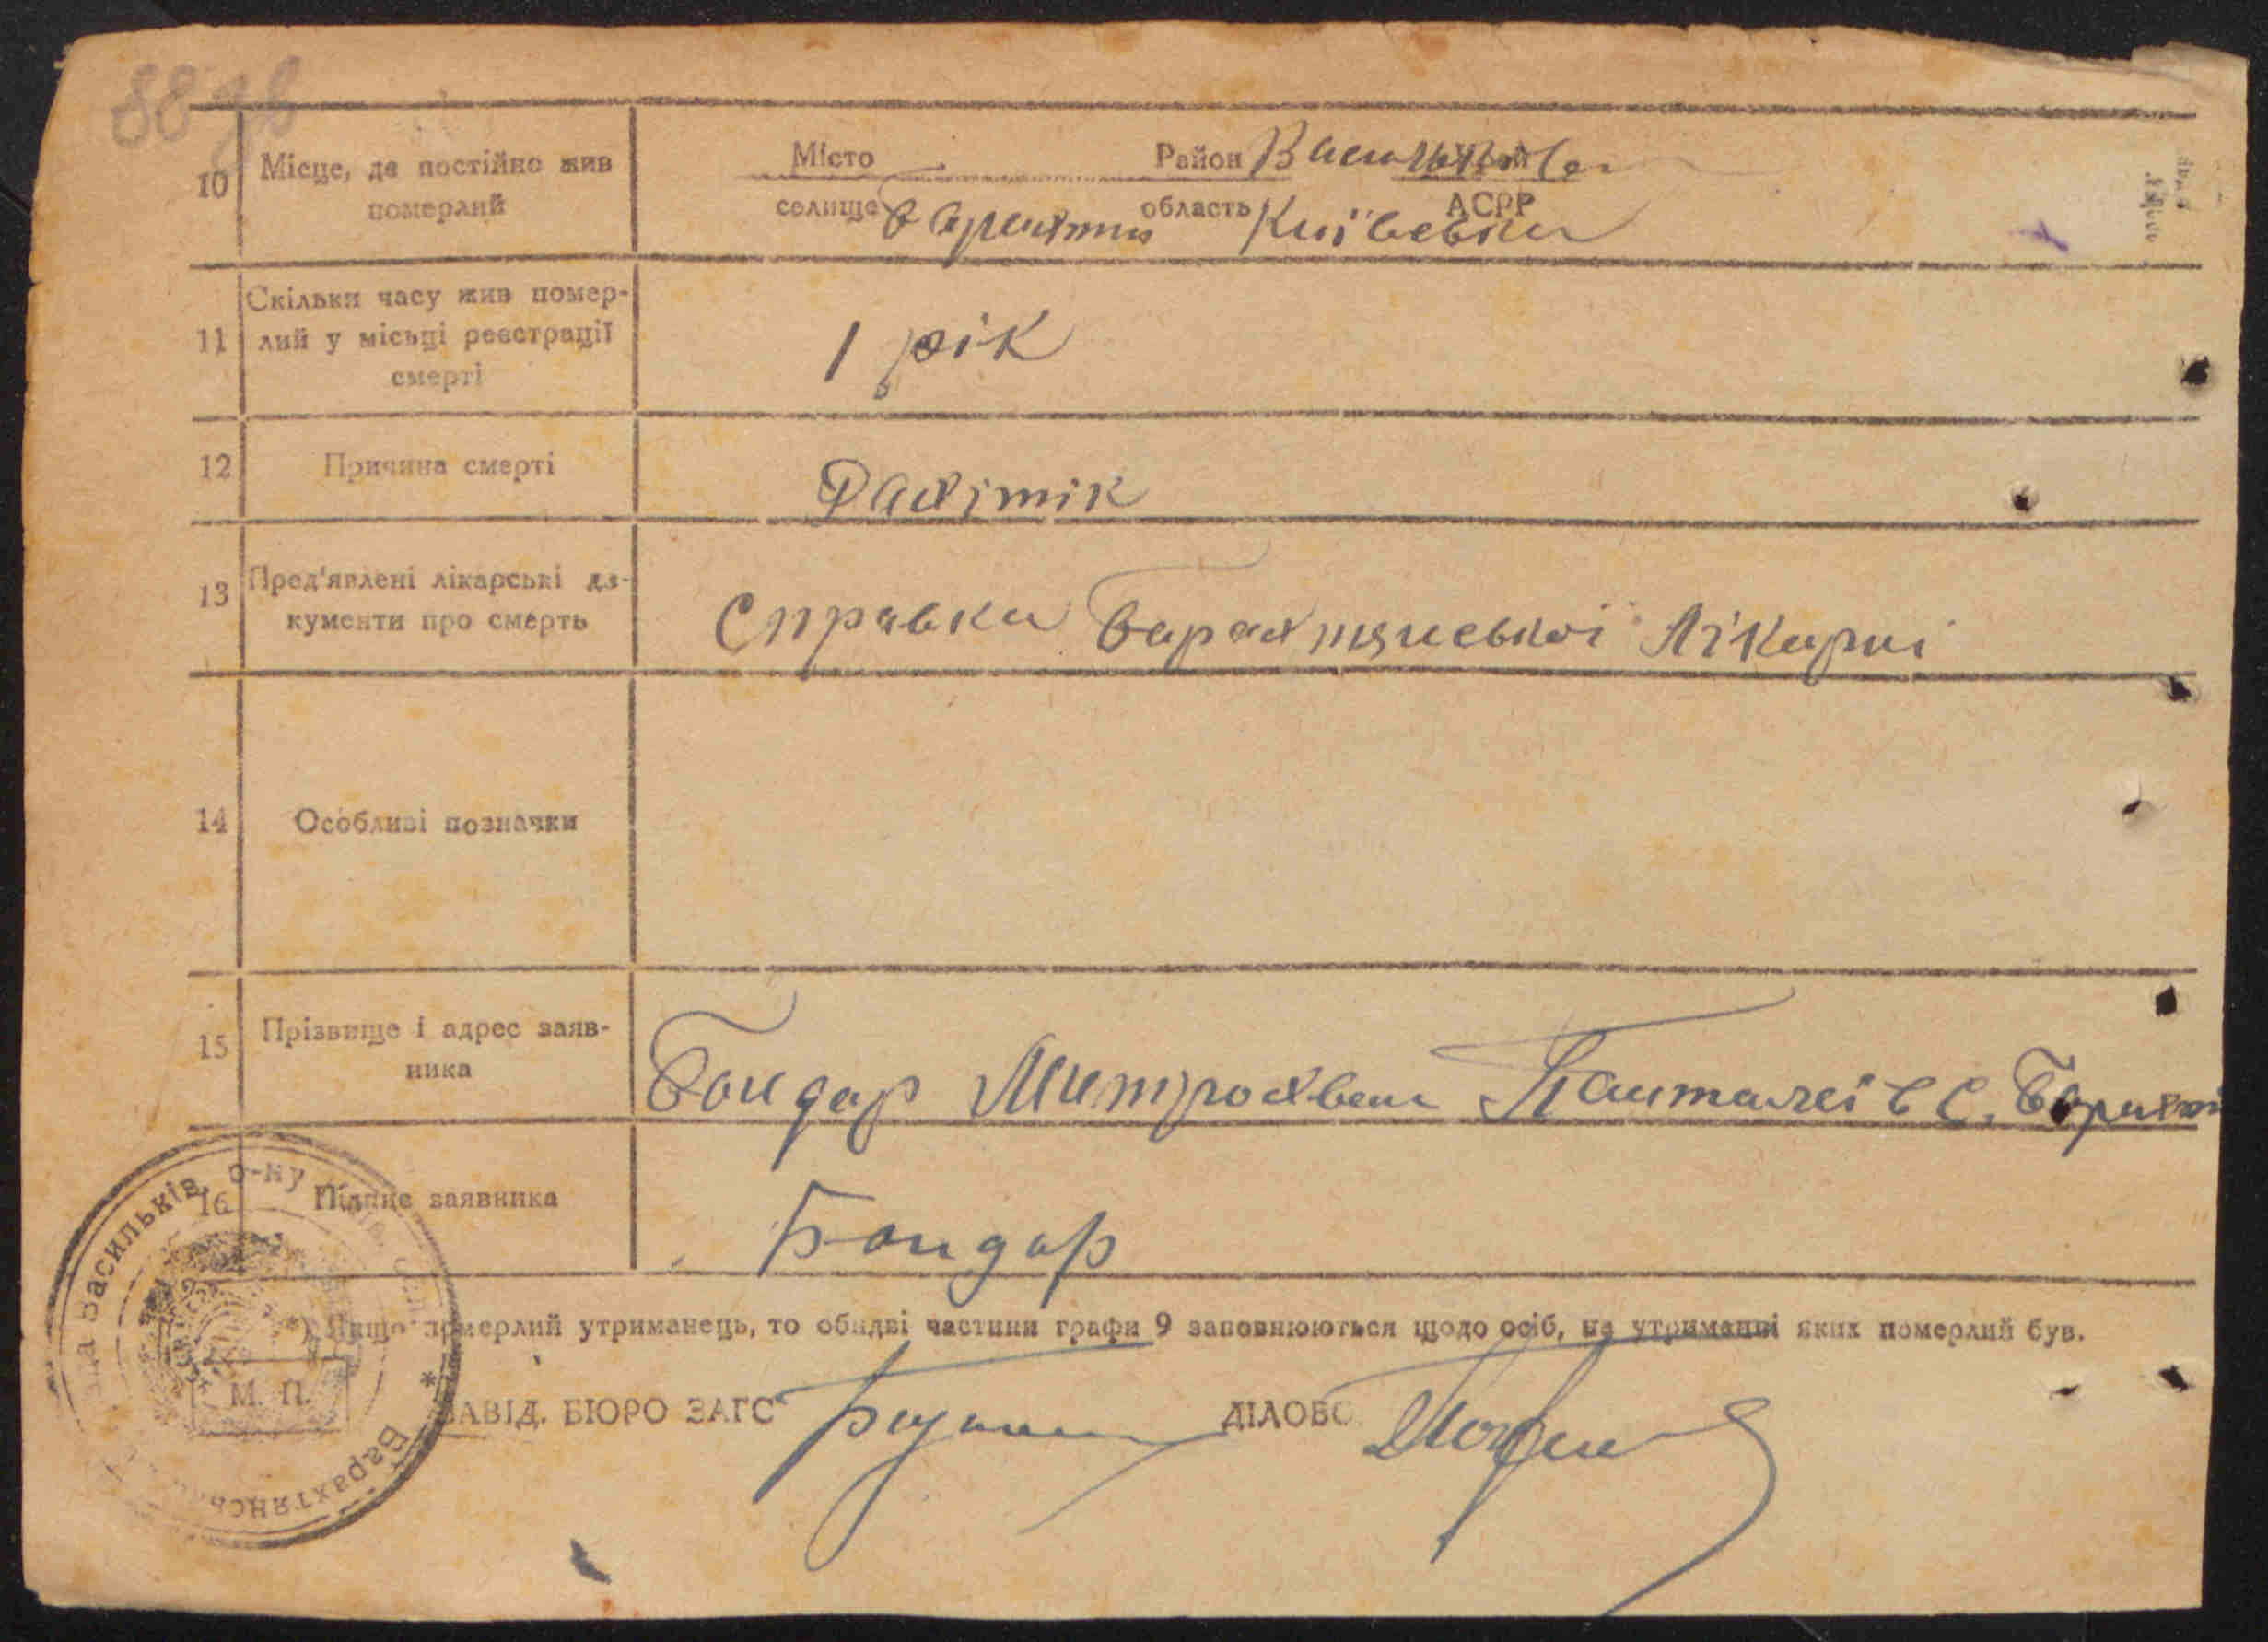 88 зв
10 Місце, де постійно жив
померлий
Місто Район Васильків
селище Барахти область Київська АСРР
11 Скільки часу жив помер-
лий у місьці реєстрації
смерті
1 рік
12 Причина смерті
Рахітік
13 Пред'явлені лікарські до-
кументи про смерть
Справка Барахтянської лікарні
14 Особливі позначки
15 Прізвище і адрес заяв-
ника
Бондар Митрохван с. Барахти
16 Підпис заявника
Бондар
*) Якщо померлий утриманець, то обидві частини графи 9 заповнюються щодо осіб, на утриманні яких померлий був.
М. П.
ЗАВІД. БЮРО ЗАГС
ДІЛОВОД
Васильків. р-ну
Барахтянсь